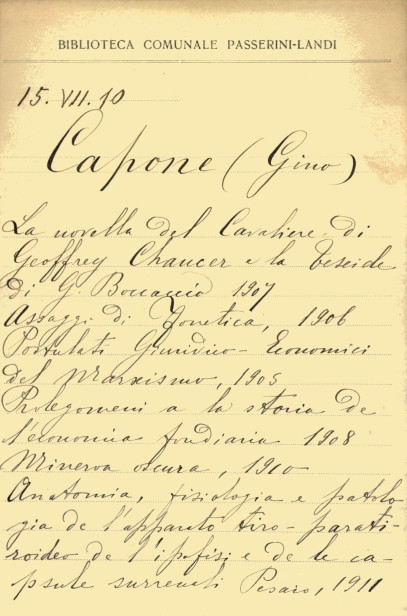 BIBLIOTECA COMUNALE PASSERINI-LANDI
15. VII. 10
Capone (Gino)
La novella del Cavaliere di
Geoffrey Chaucer e la Teseide
di G. Boccaccio 1907
Assaggi di Fonetica, 1906
Postulati Giuridico-Economici
del Marxismo, 1905
Prolegomeni a la storia de
l'economia fondiaria 1908
Minerva oscura, 1910
Anatomia, fisiologia e patolo-
gia de l'apparato tiro-parati-
roideo de l'ipofisi e de le ca-
psule surrenali Pesaro, 1911